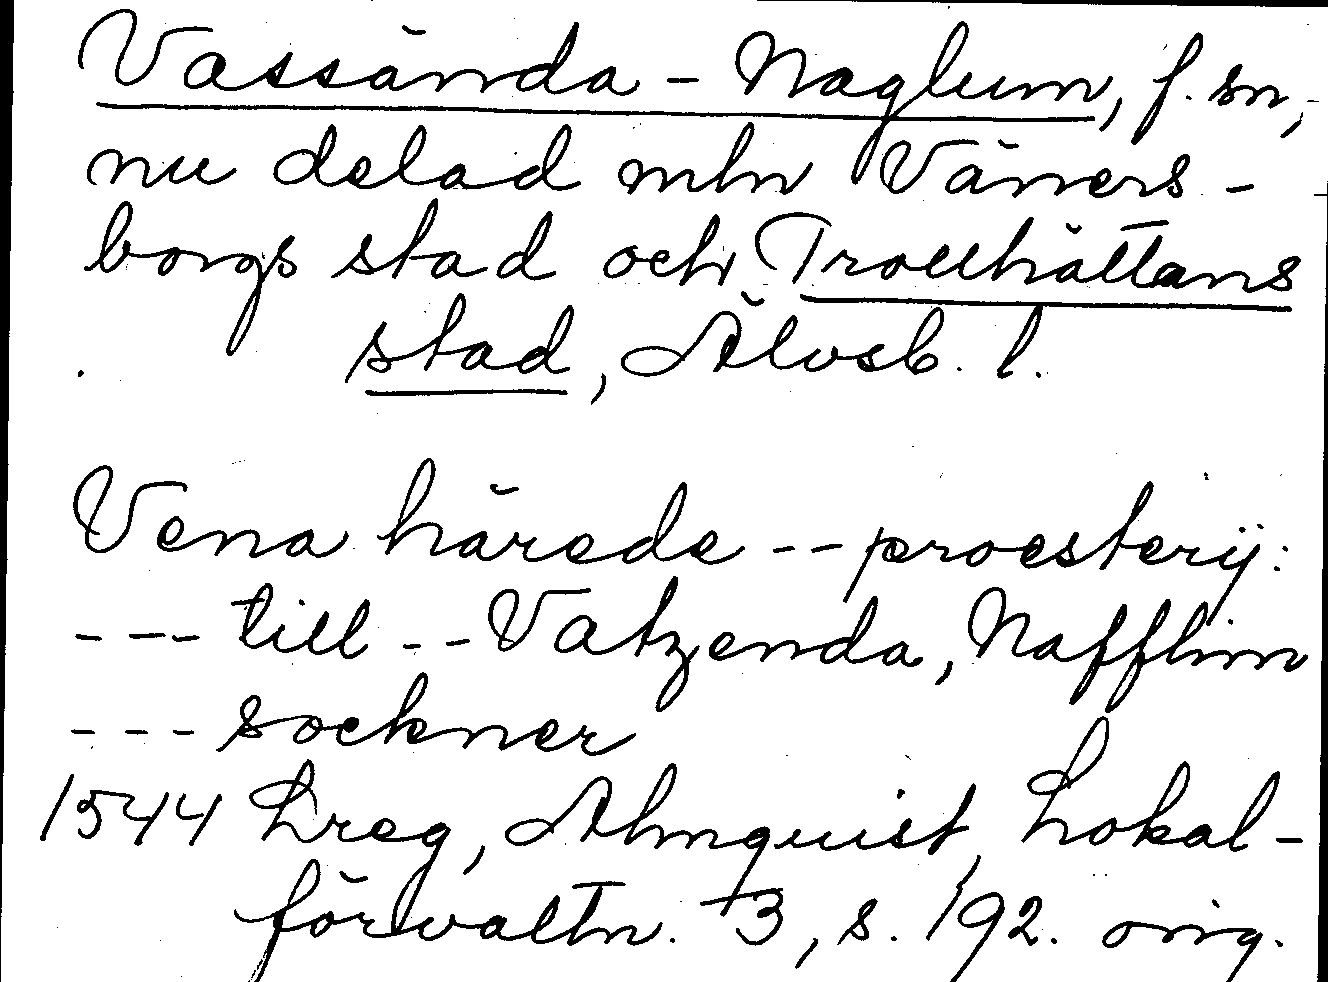 Vassända-Naglum, f. sn,
nu delad mln Väners-
borgs stad och Trollhättans
stad, Älvsb. l.
Vena härede -- proesterij:
--- till -- Vatzenda, Nafflum
--- sockner
1544 Lreg, Almquist, Lokal-
förvaltn. 3, s. 192. orig.